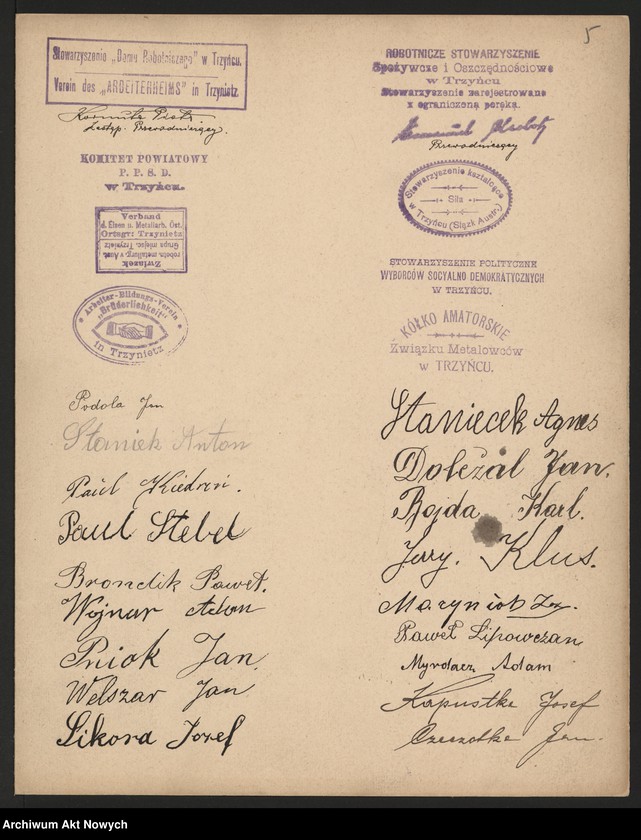 5
Stowarzyszenie „Domu Robotniczego" w Trzyńcu.
Verein des „ARBEITERHEIMS" in Trzynietz.
Zastęp. Przewodniczący.
KOMITET POWIATOWY
P. P. S. D.
w Trzyńcu.
Verband
d. Eisen u. Metallarb. Öst.
Ortsgr: Trzynietz
Grupa miejsc. Trzynietz
robotn. metallurg. v Aust.
Związek
Arbeiter-Bildungs-Verein
„Brüderlichkeit"
in Trzynietz
Podola Jan
Staniek Anton
Paul Kiedroń.
Paul Stebel
Brondik Paweł.
Wojnar Adam
Pniok Jan.
Welszar Jan
Sikora Jozef
ROBOTNICZE STOWARZYSZENIE
Spożywcze i Oszczędnościowe
w Trzyńcu
Stowarzyszenie zarejestrowane
z ograniczoną poręką.
Przewodniczący
Stowarzyszenie kształcące
Siła
w Trzyńcu (Śląsk Austr.)
STOWARZYSZENIE POLITYCZNE
WYBORCÓW SOCYALNO DEMOKRATYCZNYCH
W TRZYŃCU.
KÓŁKO AMATORSKIE
Związku Metalowców
w TRZYŃCU.
Staniecek Agnes
Doležál Jan.
Bojda Karl.
Jerzy. Klus.
Paweł Lipowczan
Myrdacz Adam
Kapustka Josef
Czeczotka Jan.
Archiwum Akt Nowych